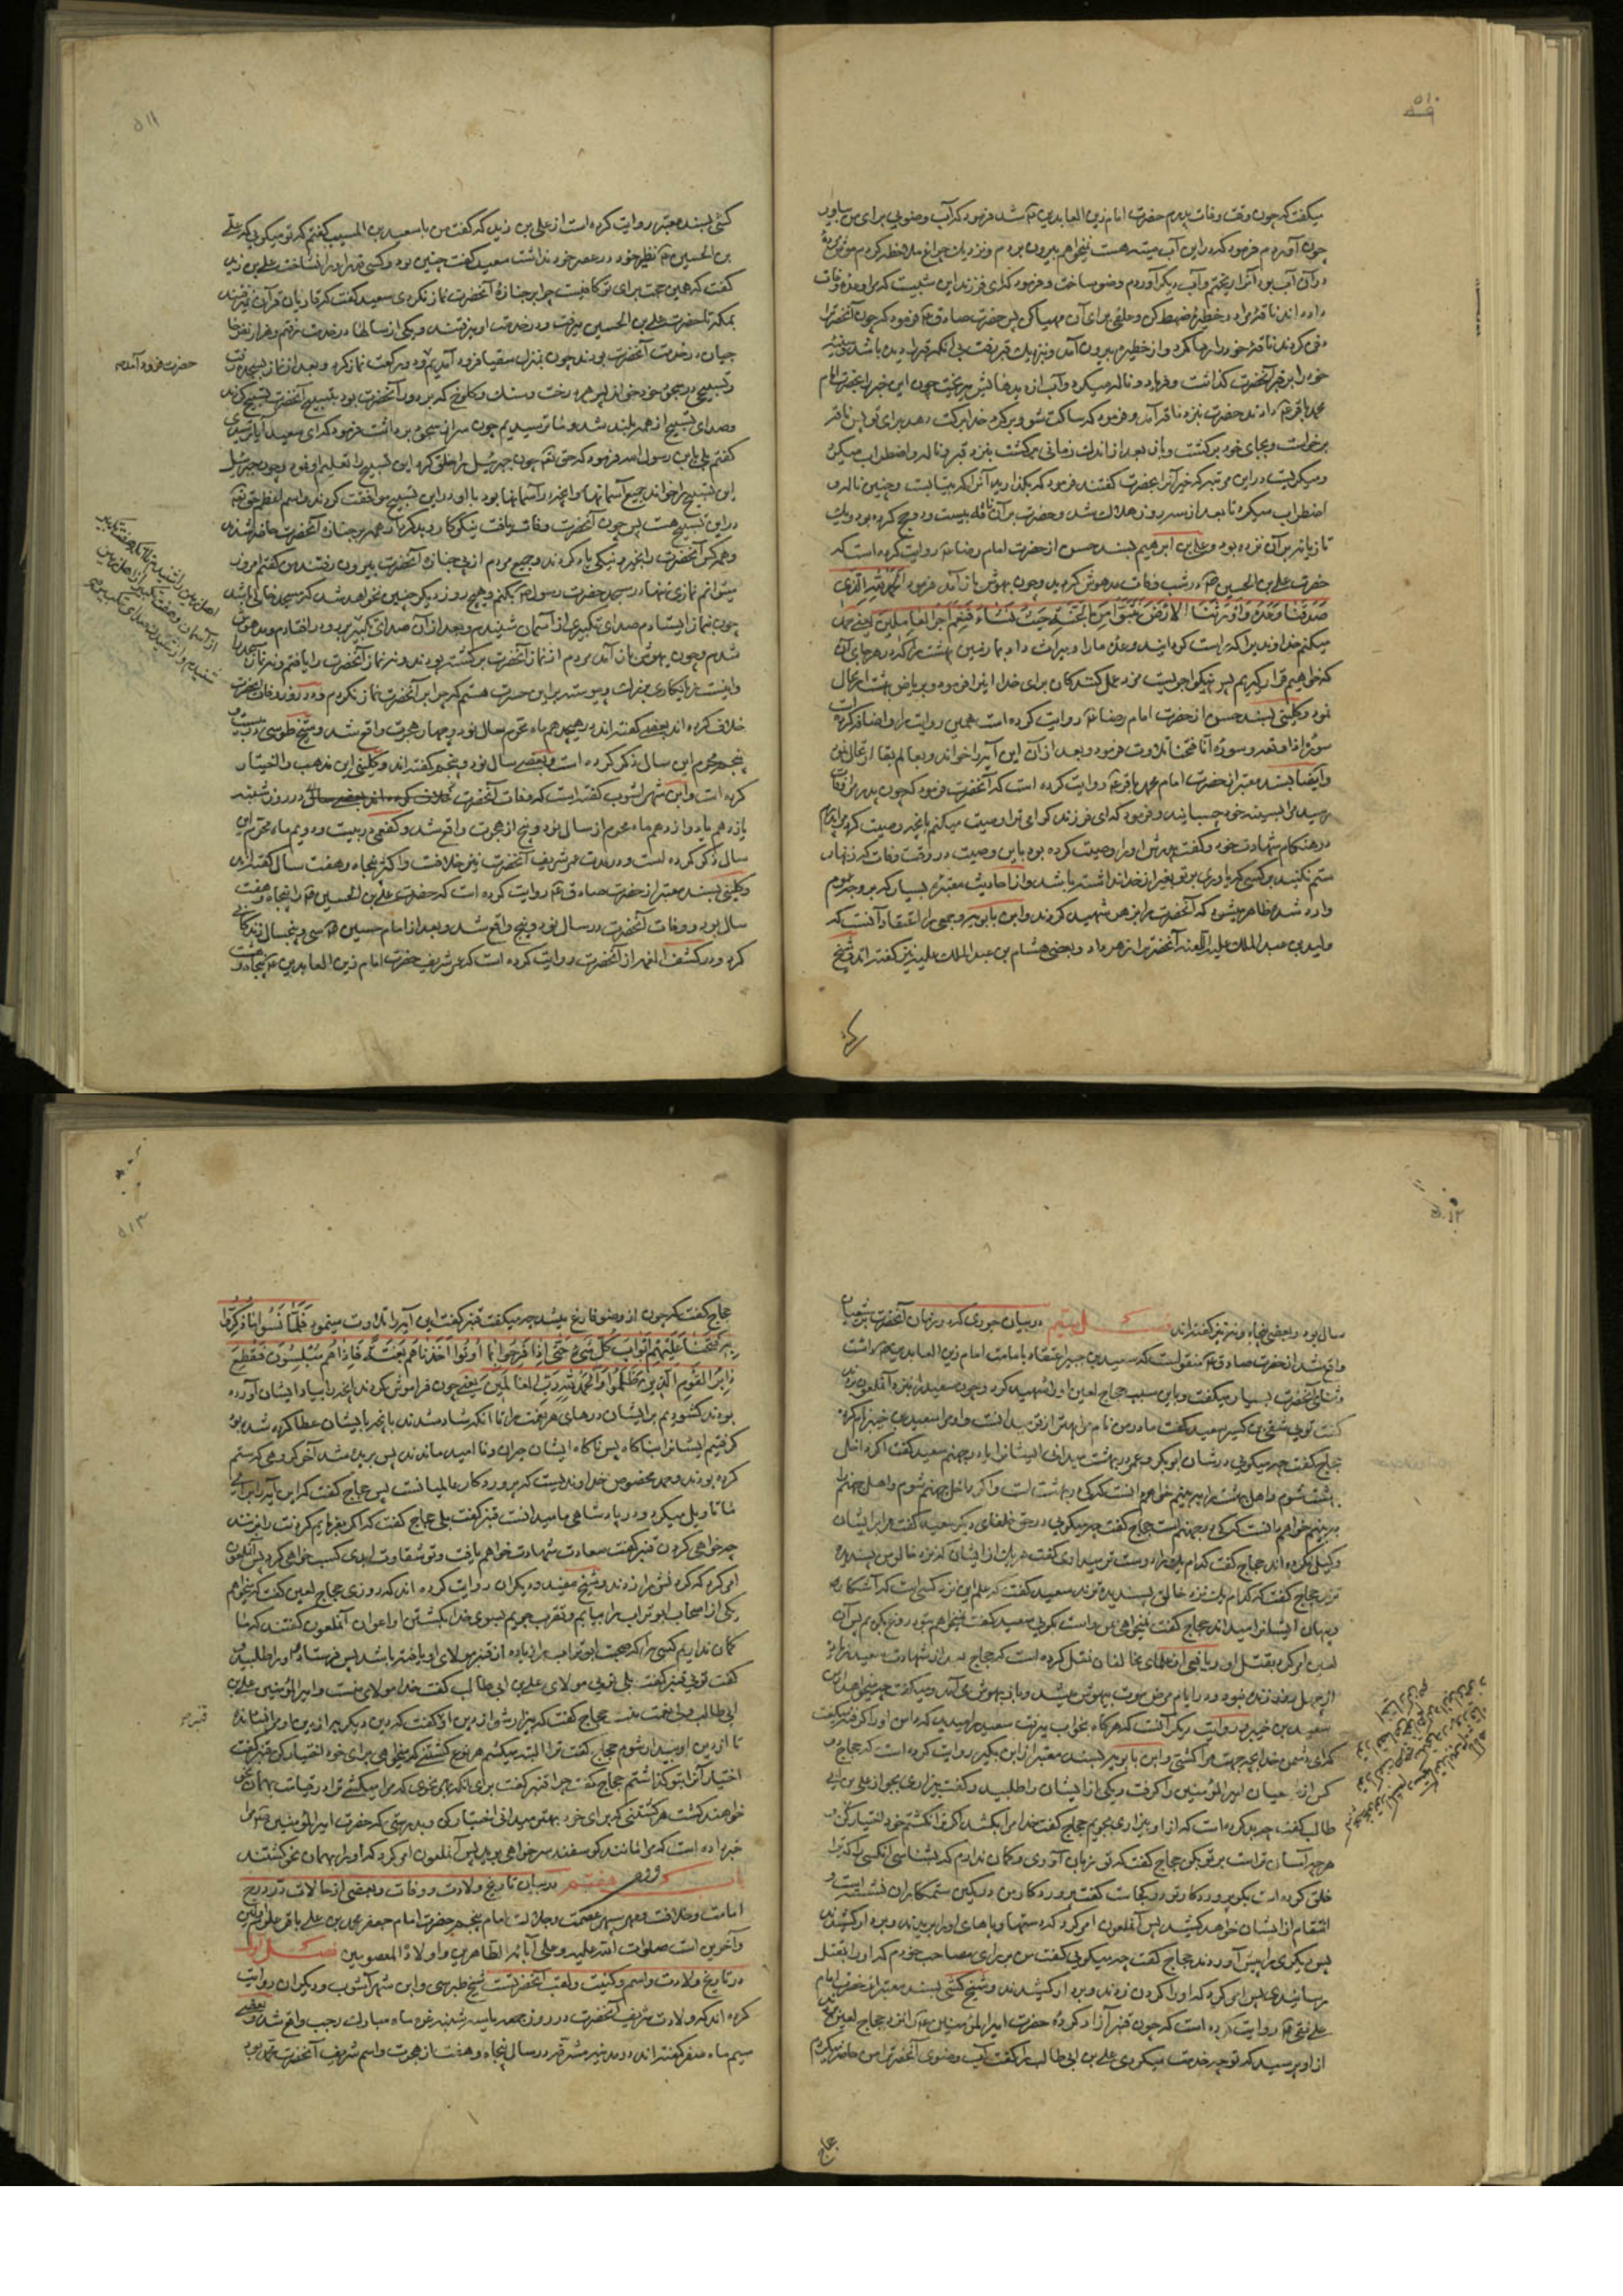 ۵۱۰
میکفت که چون وقت وفات پدرم حضرت امام زین العابدین ع شد فرمود که آب وضویی برای من بیاور
چون آوردم فرمود که در این آب میته هست نمیخواهم بیرون بردم و نزدیک چراغ ملاحظه کردم موش مرده
در آن آب بود آنرا ریختم و آب دیگر آوردم وضو ساخت و فرمود که ای فرزند این شبیست که مرا وعده وفات
داده اند ناقه مرا در حظیره ضبط کن و علفی برای آن مهیا کن پس حضرت صادق ع فرمود که چون آنحضرت را
دفن کردند ناقه خود را رها کرد و از حظیره بیرون آمد و نزدیک قبر رفت بی آنکه قبر را دیده باشد و سینه
خود را بر قبر آنحضرت گذاشت و فریاد و ناله میکرد و آب از دیدهایش میریخت چون این خبر بحضرت امام
محمد باقر ع دادند حضرت بنزد ناقه آمد و فرمود که ساکت شو و برگرد خدا برکت دهد برای تو پس ناقه
برخاست و بجای خود برگشت و باز بعد از اندک زمانی برگشت بنزد قبر و ناله و اضطراب میکرد
و میگریست در این مرتبه که خبر آنرا بحضرت گفتند فرمود که بگذارید آنرا که بیتابست و چنین ناله و
اضطراب میکرد تا بعد از سه روز هلاک شد و حضرت بر آن ناقه بیست و دو حج کرده بود و یک
تازیانه بر آن نزده بود و علی بن ابرهیم بسند حسن از حضرت امام رضا ع روایت کرده است که
حضرت علی بن الحسین ع در شب وفات مدهوش گردید و چون بهوش باز آمد فرمود الحمد لله الذی
صدقنا وعده و اورثنا الارض نتبوء من الجنة حیث نشاء فنعم اجر العاملین یعنی حمد
میکنم خداوندیرا که راست گردانید وعده ما را و میراث داد بما زمین بهشت را که در هر جای آن
که خواهیم قرار گیریم پس نیکو اجریست مزد عمل کنندگان برای خدا این را فرمود و بریاض بهشت ارتحال
نمود و کلینی بسند حسن از حضرت امام رضا ع روایت کرده است همین روایت را و اضافه کرده است
سوره اذا وقعه و سوره انا فتحنا تلاوت فرمود و بعد از آن این آیه را خواند و بعالم بقا ارتحال نمود
و ایضا بسند معتبر از حضرت امام محمد باقر ع روایت کرده است که آنحضرت فرمود که چون پدرم را وفات
رسید مرا بسینه خود چسبانید و فرمود که ای فرزند گرامی ترا وصیت میکنم بآنچه وصیت کرد مرا پدرم
در هنگام شهادت خود و گفت پدرش او را وصیت کرده بود باین وصیت در وقت وفات که زنهار
ستم نکنید بر کسی که یاوری بر تو بغیر از خدا نداشته باشد و از احادیث معتبره بسیار که بر وجه عموم
وارد شده ظاهر میشود که آنحضرت را بزهر شهید کردند و ابن بابویه و جمعی را اعتقاد آنست که
ولید بن عبد الملک علیه اللعنه آنحضرت را زهر داد و بعضی هشام بن عبد الملک علیه نیز گفته اند و شیخ
۵۱۱
کشی بسند معتبر روایت کرده است از علی بن زید که گفت من با سعید بن المسیب گفتم که تو میگویی که علی
بن الحسین ع نظیر خود در عصر خود نداشت سعید گفت چنین بود و کسی قدر او را نشناخت علی بن زید
گفت که همین حجت برای تو کافیست چرا بر جنازه آنحضرت نماز نکردی سعید گفت که قاریان قرآن نمیرفتند
بمکه تا حضرت علی بن الحسین میرفت و در خدمت او میرفتند و یکی از سالها در خدمت او رفتم و هزار نفر از
حاجیان در خدمت آنحضرت بودند چون بمنزل سقیا فرود آمدیم و دو رکعت نماز کرد و بعد از نماز بسجده رفت
حضرت فرود آمد
و تسبیحی در سجود خود خواند پس هر درخت و سنگ و کلوخ که بر دور آنحضرت بود بتسبیح آنحضرت تسبیح کردند
و صدای تسبیح از همه بلند شد و ما ترسیدیم چون سر از سجود برداشت فرمود که ای سعید آیا ترسیدی
گفتم بلی یابن رسول الله فرمود که حق تعالی چون جبرئیل را خلق کرد این تسبیح را تعلیم او نمود و چون جبرئیل
این تسبیح را خواند جمیع آسمانها و آنچه در آسمانها بود با او در این تسبیح موافقت کردند و اسم اعظم حق تعالی
در این تسبیح هست پس چون آنحضرت وفات یافت نیکوکار و بدکردار همه بر جنازه آنحضرت حاضر شدند
و همه کس آنحضرت را بخیر و نیکی یاد کردند و جمیع مردم از پی جنازه آنحضرت بیرون رفتند من گفتم امروز
میتوانم نمازی تنها در مسجد حضرت رسول ص بکنم و هیچ روز دیگر چنین نخواهد شد که مسجد خالی باشد
چون بنماز ایستادم صدای تکبیری از آسمان شنیدم و بعد از آن صدای تکبیر
شدم و چون بهوش باز آمدم مردم از نماز آنحضرت برگشته بودند و نه نماز آنحضرت را یافتم و نه نماز مسجد را
و اینست زیانکاری و پیوسته بر این حسرت هستم که چرا بر آنحضرت نماز نکردم و در روز وفات آنحضرت
خلاف کرده اند بعضی گفته اند در هیجدهم ماه محرم سال نود و چهار هجرت واقع شد و شیخ طوسی در بیست و
پنجم محرم این سال ذکر کرده است و بعضی سال نود و پنجم گفته اند و کلینی این مذهب را اختیار
کرده است و ابن شهر آشوب گفته است که وفات آنحضرت در روز شنبه
یازدهم یا دوازدهم ماه محرم از سال نود و پنج از هجرت واقع شد و کفعمی در بیست و دویم ماه محرم این
سال ذکر کرده است و در مدت عمر شریف آنحضرت نیز خلافست و اکثر پنجاه و هفت سال گفته اند
و کلینی بسند معتبر از حضرت صادق ع روایت کرده است که حضرت علی بن الحسین ع را پنجاه و هفت
سال بود و وفات آنحضرت در سال نود و پنج واقع شد و بعد از امام حسین ع سی و پنجسال زندگانی
کرد و در کشف الغمه از آنحضرت روایت کرده است که عمر شریف حضرت امام زین العابدین ع پنجاه و هشت
۵۱۲
سال بود و بعضی پنجاه و نه نیز گفته اند فصل در بیان جوری که در زمان آنحضرت بر شیعیان
واقع شد از حضرت صادق ع منقولست که سعید بن جبیر اعتقاد بامامت امام زین العابدین ع داشت
و ثنای آنحضرت بسیار میگفت و باین سبب حجاج لعین او را شهید کرد و چون سعید را بنزد آنملعون بردند
گفت تویی شقی بن کسیر سعید گفت مادر من نام مرا بهتر از تو میدانست و او مرا سعید بن جبیر نام کرده
حجاج گفت چه میگویی در شان ابوبکر و عمر در بهشت میدانی ایشانرا یا در جهنم سعید گفت اگر داخل
بهشت شوم و اهل بهشت را ببینم خواهم دانست که کی در بهشت است و اگر داخل جهنم شوم و اهل جهنم را
ببینم خواهم دانست که کی در جهنم است حجاج گفت چه میگویی در حق خلفای دیگر سعید گفت مرا بر ایشان
وکیل نکرده اند حجاج گفت کدام یک را دوست تر میداری گفت هر یک از ایشان که نزد خالق من پسندیده
ترند حجاج گفت که کدام یک نزد خالق پسندیده ترند سعید گفت که علم این نزد کسی است که آشکار و
پنهان ایشانرا میداند حجاج گفت نمیخواهی بمن راست بگویی سعید گفت نمیخواهم بتو دروغ بگویم پس آن
لعین امر کرد بقتل او و یافعی از علمای مخالفان نقل کرده است که حجاج بعد از شهادت سعید زیاده
از چهل روز زنده نبود و در ایام مرض موت بیهوش میشد و باز بهوش می آمد و میگفت چه میخواهد از من
سعید بن جبیر و روایت دیگر آنست که هرگاه بخواب میرفت سعید را میدید که دامن او را گرفته میگفت
که ای دشمن خدا بچه جهت مرا کشتی و ابن بابویه بسند معتبر از ابن بکیر روایت کرده است که حجاج دو
کس از شیعیان امیر المؤمنین را گرفت و یکی از ایشان را طلبید و گفت بیزاری بجو از علی بن ابی
طالب گفت چه بد کرده است که از او بیزاری بجویم حجاج گفت خدا مرا بکشد اگر ترا نکشم خود اختیار کن
هر چه آسان تر است بر تو بگو حجاج گفت که تو زبان آوری و گمان ندارم که بشناسی آنکسی را که ترا
خلق کرده است بگو پروردگار تو در کجاست گفت پروردگار من در کمین ستمکاران نشسته است و
انتقام از ایشان خواهد کشید پس آنملعون امر کرد که دستها و پاهای او را بریدند و بر دار کشیدند
پس دیگری را پیش آوردند حجاج گفت چه میگویی گفت من بر رای مصاحب خودم که او را بقتل
رسانیدی پس امر کرد که او را گردن زدند و بر دار کشیدند و شیخ کشی بسند معتبر از حضرت امام
علی نقی ع روایت کرده است که چون قنبر آزاد کرده حضرت امیر المؤمنین ع را نزد حجاج لعین
از او پرسید که تو چه خدمت میکردی علی بن ابی طالب را گفت آب وضوی آنحضرت را من حاضر میکردم
حجاج
۵۱۳
حجاج گفت که چون از وضو فارغ میشد چه میگفت قنبر گفت این آیه را تلاوت مینمود فَلَمَّا نَسُوا مَا ذُكِّرُوا
بِهِ فَتَحْنَا عَلَيْهِمْ اَبْوَابَ كُلِّ شَيْءٍ حَتَّى اِذَا فَرِحُوا بِمَا اُوتُوا اَخَذْنَاهُمْ بَغْتَةً فَاِذَا هُمْ مُبْلِسُونَ فَقُطِعَ
دَابِرُ الْقَوْمِ الَّذِينَ ظَلَمُوا وَالْحَمْدُ لِلَّهِ رَبِّ الْعَالَمِينَ یعنی چون فراموش کردند آنچه را بیاد ایشان آورده
بودند گشودیم بر ایشان درهای هر نعمت را تا آنکه شاد شدند بآنچه بایشان عطا کرده شده بود
گرفتیم ایشانرا بناگاه پس ناگاه ایشان حیران و نا امید ماندند پس بریده شد آخر گروهی که ستم
کرده بودند و حمد مخصوص خداوندیست که پروردگار عالمیانست پس حجاج گفت که این آیه را برای
ما تاویل میکرد و در پادشاهی ما میدانست قنبر گفت بلی حجاج گفت که اگر بفرمایم گردنت را بزنند
چه خواهی کرد قنبر گفت سعادت شهادت خواهم یافت و تو شقاوت ابدی کسب خواهی کرد پس آنملعون
امر کرد که گردنش را زدند و شیخ مفید و دیگران روایت کرده اند که روزی حجاج لعین گفت که میخواهم
یکی از اصحاب ابوتراب را بیابم و تقرب جویم بسوی خدا بکشتن او اعوان آنملعون گفتند که ما
گمان نداریم کسی را که صحبت ابوتراب را زیاده از قنبر مولای او یافته باشد پس فرستاد و او را طلبید و
گفت تویی قنبر گفت بلی گفت تویی مولای علی بن ابی طالب گفت خدا مولای منست و امیر المؤمنین علی بن
ابی طالب ولی نعمت منست حجاج گفت که بیزار شو از دین او گفت که دین دیگر بهتر از دین او مرا نشان ده
قنبر
تا از دین او بیزار شوم حجاج گفت ترا البته میکشم هر نوع کشتنی که میخواهی برای خود اختیار کن قنبر گفت
اختیار آنرا بتو گذاشتم حجاج گفت چرا قنبر گفت برای آنکه بهر نحوی که مرا میکشی ترا در قیامت بهمان نحو
خواهند کشت هر کشتنی که برای خود بهتر میدانی اختیار کن و بدرستی که حضرت امیر المؤمنین ع مرا
خبر داده است که مرا مانند گوسفند سر خواهی برید پس آنملعون امر کرد که او را بهمان نحو کشتند
باب هفتم در بیان تاریخ ولادت و وفات و بعضی از حالات
امامت و خلافت و مهر سپهر عصمت و جلالت امام پنجم حضرت امام جعفر محمد بن علی باقر علوم اولین
و آخرین است صلوات الله علیه و علی آبائه الطاهرین و اولاده المعصومین فصل اول
در تاریخ ولادت و اسم و کنیت و لقب آنحضرتست شیخ طبرسی و ابن شهر آشوب و دیگران روایت
کرده اند که ولادت شریف آنحضرت در روز جمعه یا سه شنبه غره ماه مبارک رجب واقع شد و بعضی
سیم ماه صفر گفته اند در مدینه مشرفه در سال پنجاه و هفت از هجرت و اسم شریف آنحضرت محمد بود